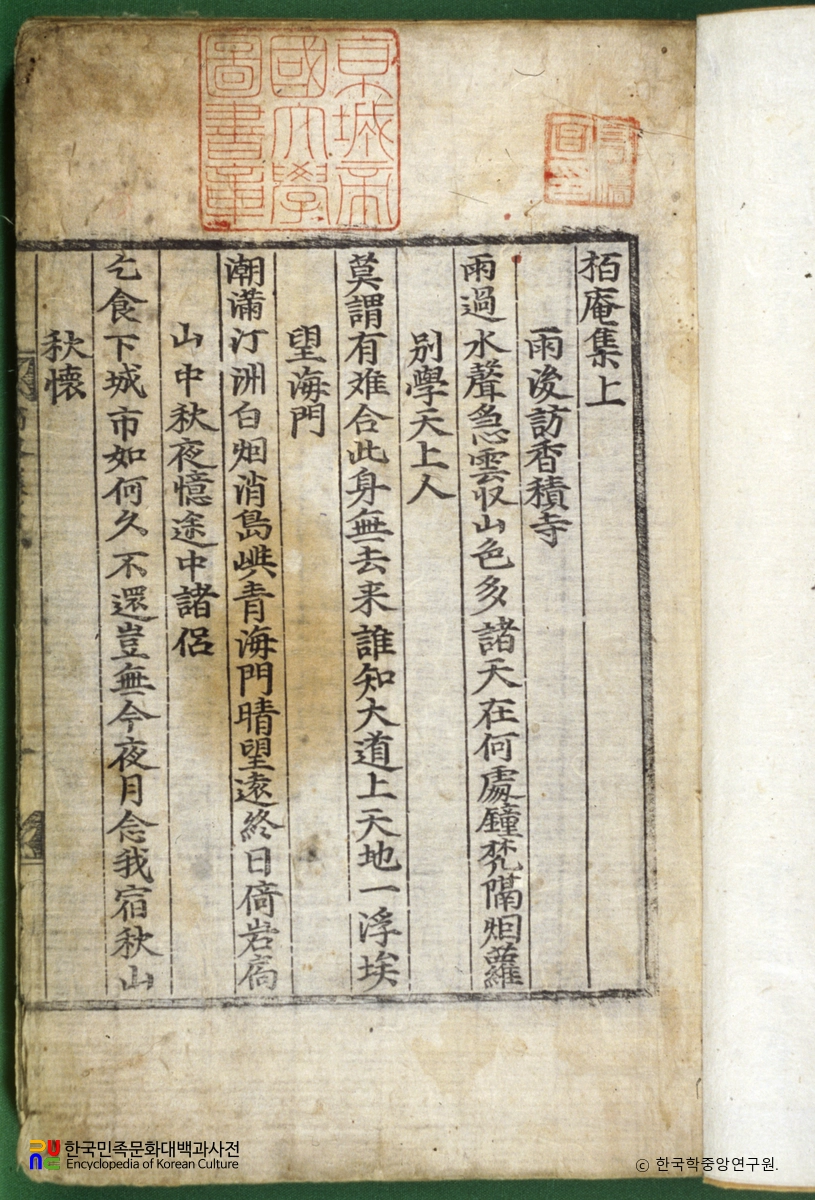 京城帝
國大學
圖書章
栢庵集上
雨後訪香積寺
雨過水聲急雲収山色多諸天在何處鐘梵隔烟蘿
別學天上人
莫謂有难合此身無去来誰知大道上天地一浮埃
望海門
潮滿汀洲白烟消島嶼青海門晴望遠終日倚岩扃
山中秋夜憶途中諸侶
乞食下城市如何久不還豈無今夜月念我宿秋山
秋懷
한국민족문화대백과사전
Encyclopedia of Korean Culture
© 한국학중앙연구원.